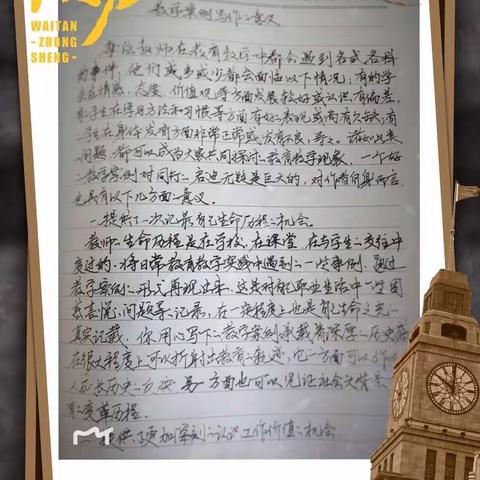 WAITAN
- ZHONG
SHENG -
教学案例写作之意义
每位教师在教育教学中都会遇到各式各样
的事件,他们或多或少都会面临以下情况:有的学
生在情感、态度、价值观等方面发展较好或认识有偏差,
学生在学习方法和习惯等方面有好的表现或尚有欠缺;有
学生在身体发育方面非常正常或发育不良,等等。诸如此类
问题,都可以成为大家共同探讨之教育教学现象,一个好
教学案例对同行之启迪无疑是巨大的,对作者自身而言,
也具有以下几方面之意义
一、提供了一次记录自己生命历程之机会。
教师之生命历程是在学校、在课堂、在与学生之交往中
度过的。将日常教育教学实践中遇到之一些事例,通过
教学案例之形式再现出来,这是对职业生活中一些困
惑喜悦,问题等之记录,在一定程度上也是自己生命之光之
真实记载。你用心写下之教学案例承载着深厚之历史
在很大程度上可以折射出教育之轨迹,它一方面可以
人成长历史 另一方面也可以见证社会大情景
变革历程。
提供了更加深刻之认识工作价值之机会